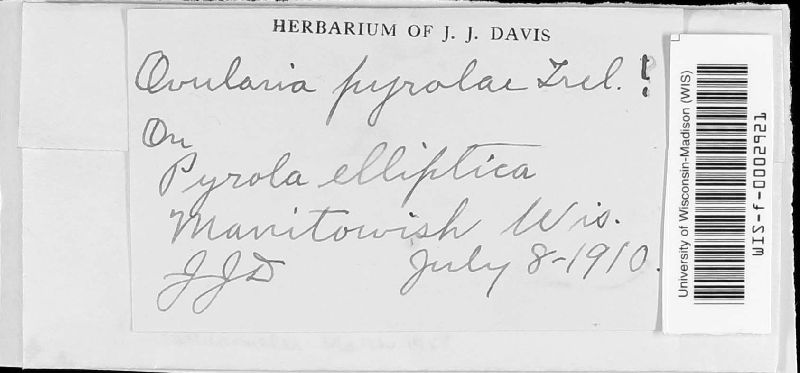 HERBARIUM OF J. J. DAVIS
Ovularia pyrolae Trel. !
On
Pyrola elliptica
Manitowish Wis.
JJD July 8-1910.
University of Wisconsin-Madison (WIS)
WIS-f-0002921